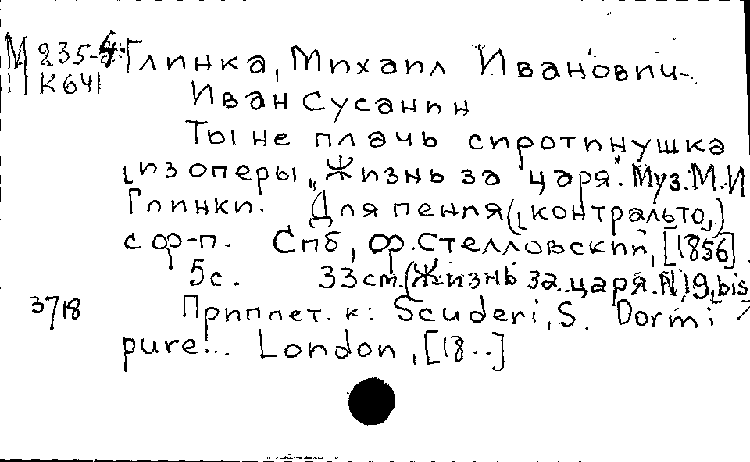 М 235-4 Глинка, Михаил Иванович.
К 641
Иван Сусанин
Ты не плачь сиротинушка
[из оперы „Жизнь за царя". Муз. М.И
Глинки. Для пения ([контральто,])
с ф-п. Спб, Ф. Стелловский, [1856].
5с. 33cm. (Жизнь за царя. N) 9, bis
3718 Приплет. к: Scuderi, S. Dormi
pure!.. London, [18..]